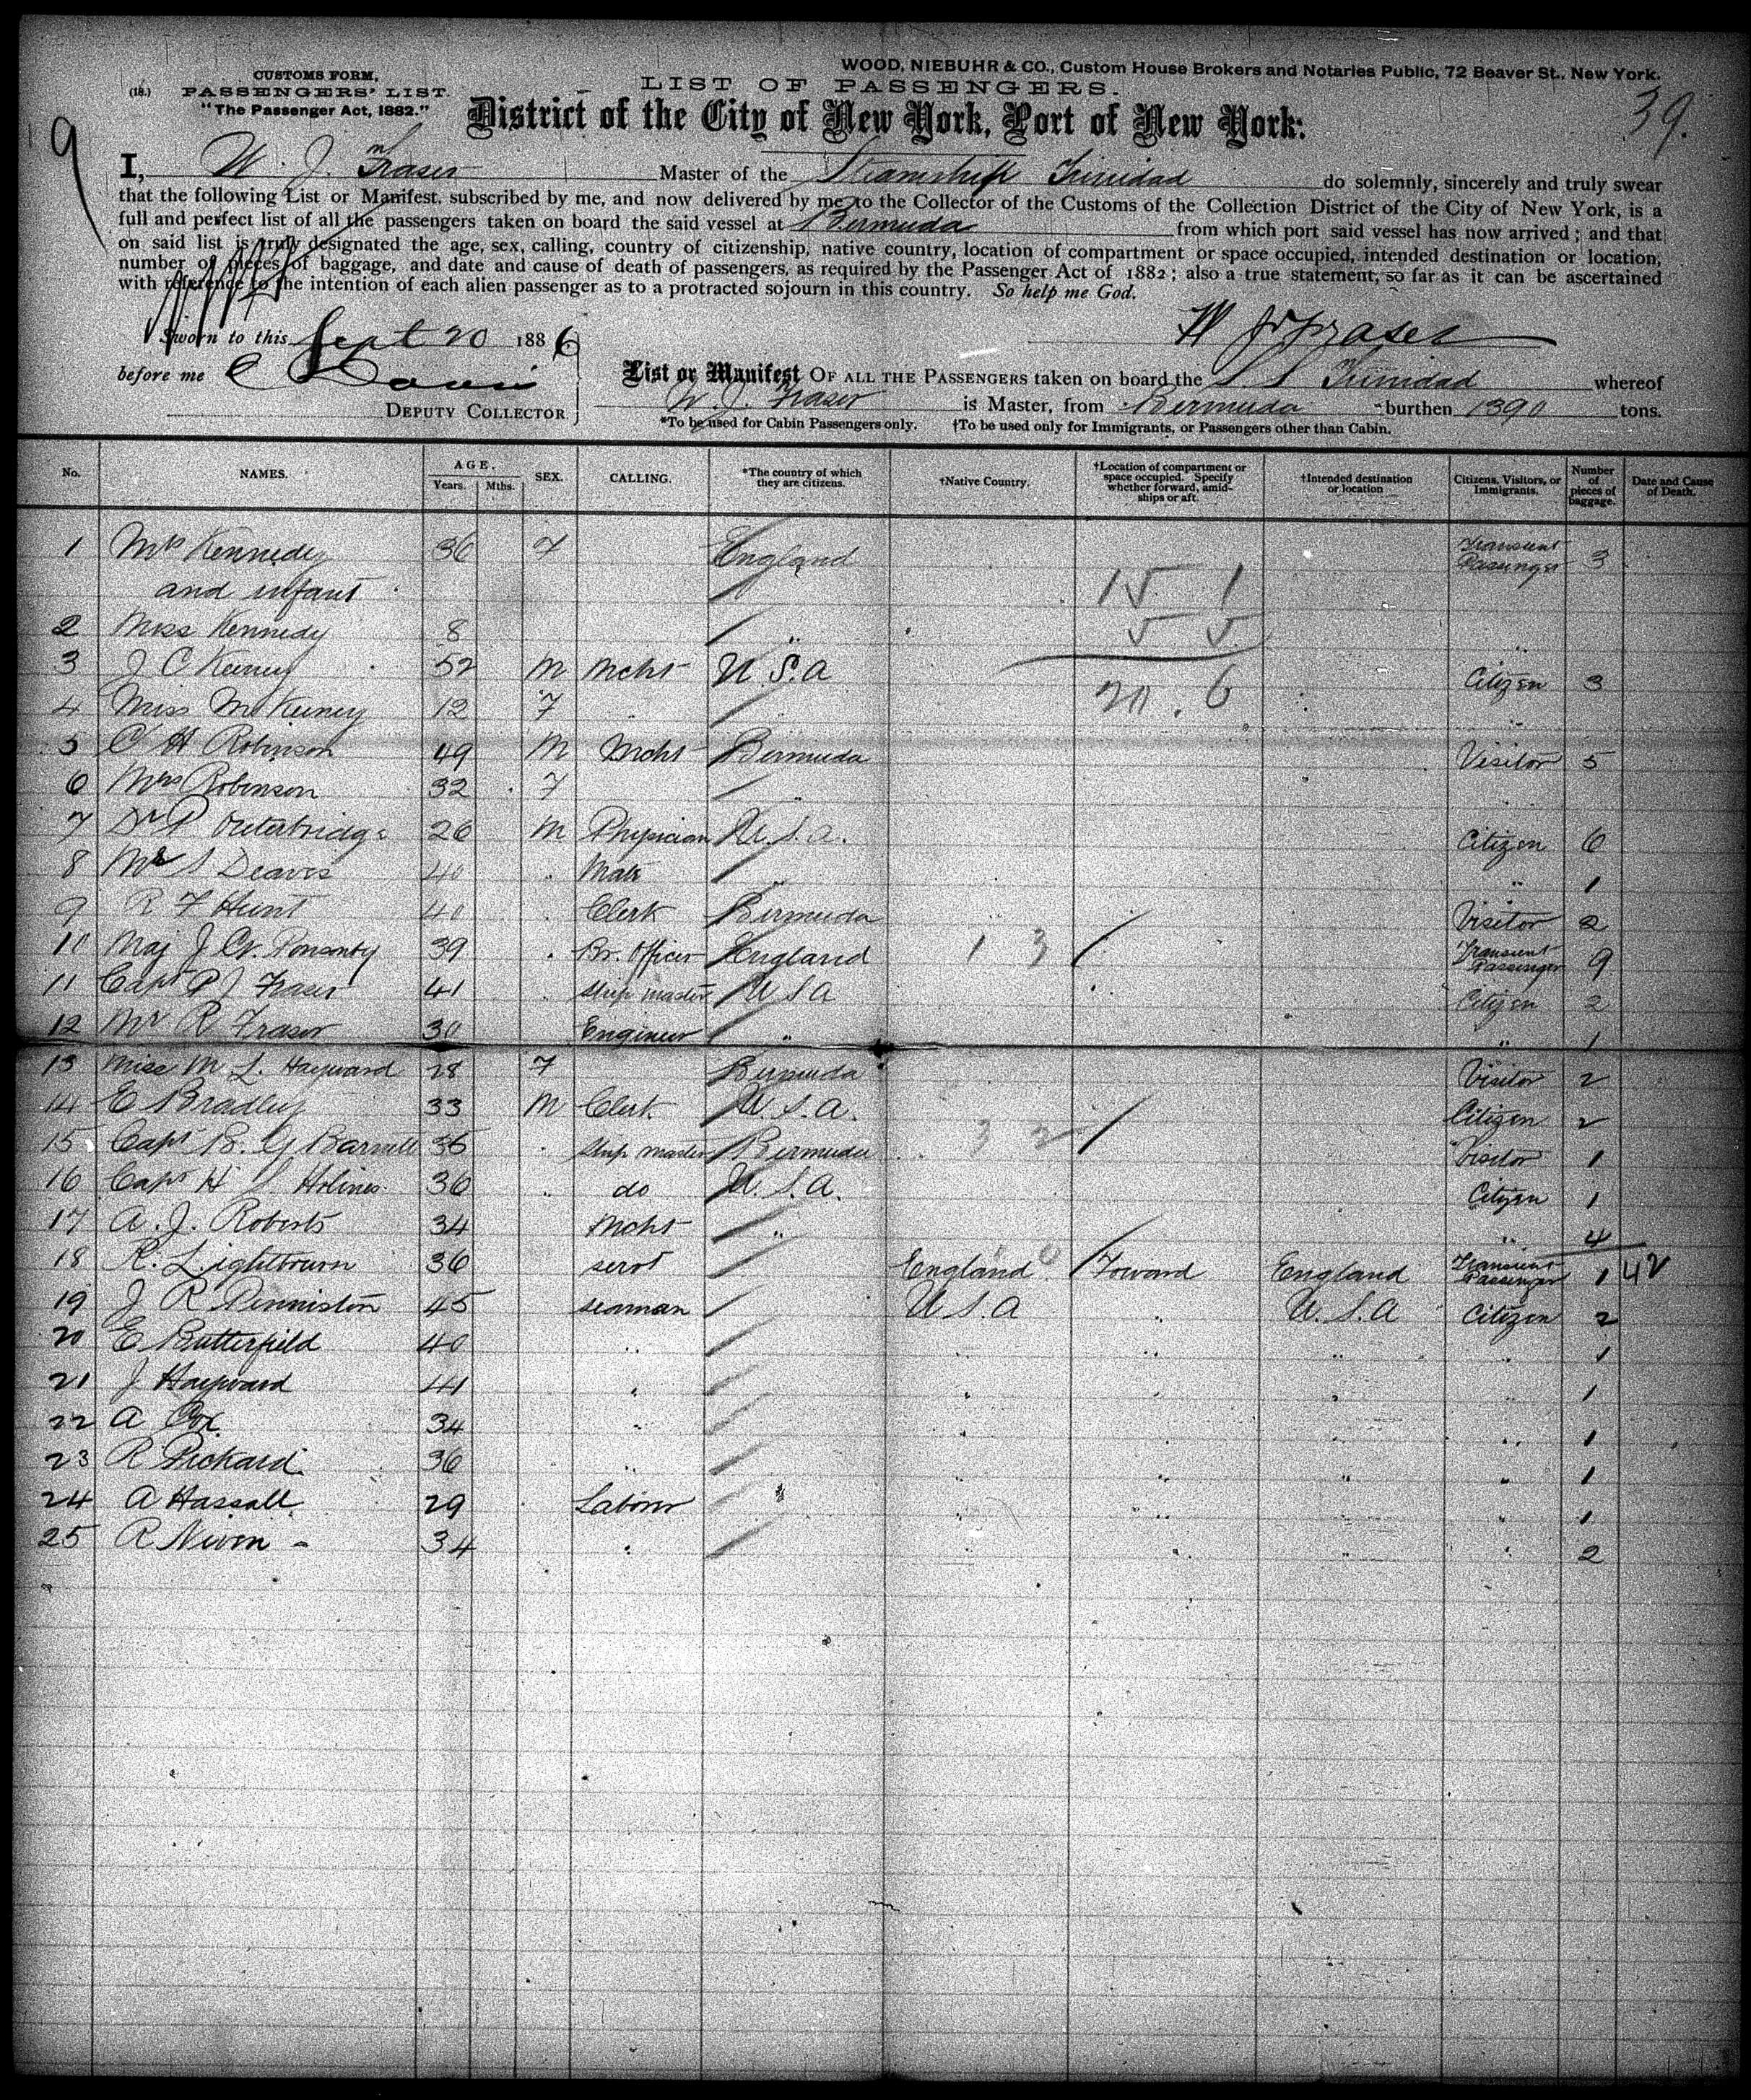 WOOD, NIEBUHR & CO., Custom House Brokers and Notaries Public, 72 Beaver St., New York.
(18.)
CUSTOMS FORM,
PASSENGERS' LIST.
"The Passenger Act, 1882."
LIST OF PASSENGERS.
District of the City of New York, Port of New York:
39.
9
I, W. J. Fraser Master of the Steamship Trinidad do solemnly, sincerely and truly swear
that the following List or Manifest, subscribed by me, and now delivered by me to the Collector of the Customs of the Collection District of the City of New York, is a
full and perfect list of all the passengers taken on board the said vessel at Bermuda from which port said vessel has now arrived; and that
on said list is truly designated the age, sex, calling, country of citizenship, native country, location of compartment or space occupied, intended destination or location,
number of pieces of baggage, and date and cause of death of passengers, as required by the Passenger Act of 1882; also a true statement, so far as it can be ascertained
with reference to the intention of each alien passenger as to a protracted sojourn in this country. So help me God.
Sworn to this Sept 20 1886
W J Fraser
before me
DEPUTY COLLECTOR
List or Manifest OF ALL THE PASSENGERS taken on board the S S Trinidad whereof
W. J. Fraser is Master, from Bermuda burthen 1390 tons.
*To be used for Cabin Passengers only. †To be used only for Immigrants, or Passengers other than Cabin.
No. NAMES. AGE. Years. Mths. SEX. CALLING. *The country of which they are citizens. †Native Country. †Location of compartment or space occupied. Specify whether forward, amidships or aft. †Intended destination or location Citizens, Visitors, or Immigrants. Number of pieces of baggage. Date and Cause of Death.
1 Mrs Kennedy 36 F England Transient Passenger 3
and infant 15 1
2 Miss Kennedy 8 " 5 5
3 J C Keeney 52 M Mcht U.S.A Citizen 3
4 Miss M Keeney 12 F 20 . 6
5 C H Robinson 49 M Mcht Bermuda Visitor 5
6 Mrs Robinson 32 F "
7 Dr P Outerbridge 26 M Physician U.S.A. Citizen 6
8 S Deaves 40 " " 1
9 R F Hunt 40 " Clerk Bermuda Visitor 2
10 Maj J Ponsonby 39 " Br. Officer England 1 3 Transient Passenger 9
11 Capt P J Fraser 41 " Ship master U S A Citizen 2
12 Mr R Fraser 30 Engineer " " 1
13 Miss M L. Hayward 28 F Bermuda Visitor 2
14 E Bradley 33 M Clerk U.S.A. Citizen 2
15 Capt 36 " Ship master Bermuda 3 2 Visitor 1
16 Capt H S 36 " do U.S.A. Citizen 1
17 A. J. Roberts 34 Mcht " " 4
18 R. Lightbourn 36 servt England Forward England Transient Passenger 1 42
19 J R Penniston 45 seaman U S A " U.S.A Citizen 2
20 E Butterfield 40 " " " " " 1
21 J Hayward 41 " " " " " 1
22 A Cox 34 " " " " " 1
23 R Pickard 36 " " " " " 1
24 A Hassall 29 Laborer " " " " 1
25 R Niven 34 " " " " " 2